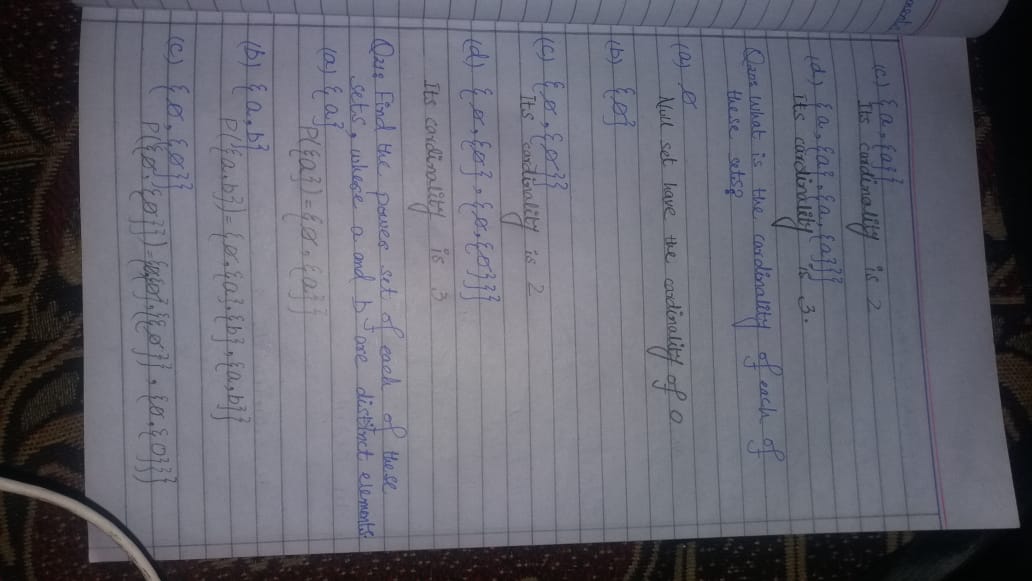 (c) {a, {a}}
Its cardinality is 2
(d) {a, {a}, {a, {a}}}
Its cardinality is 3.
Q20: What is the cardinality of each of
these sets?
(a) ∅
Null set have the cardinality of 0
(b) {∅}
(c) {∅, {∅}}
Its cardinality is 2
(d) {∅, {∅}, {∅, {∅}}}
Its cardinality is 3
Q21: Find the power set of each of these
sets, where a and b are distinct elements.
(a) {a}
P({a}) = {∅, {a}}
(b) {a, b}
P({a, b}) = {∅, {a}, {b}, {a, b}}
(c) {∅, {∅}}
P({∅, {∅}}) = {∅, {∅}, {{∅}}, {∅, {∅}}}